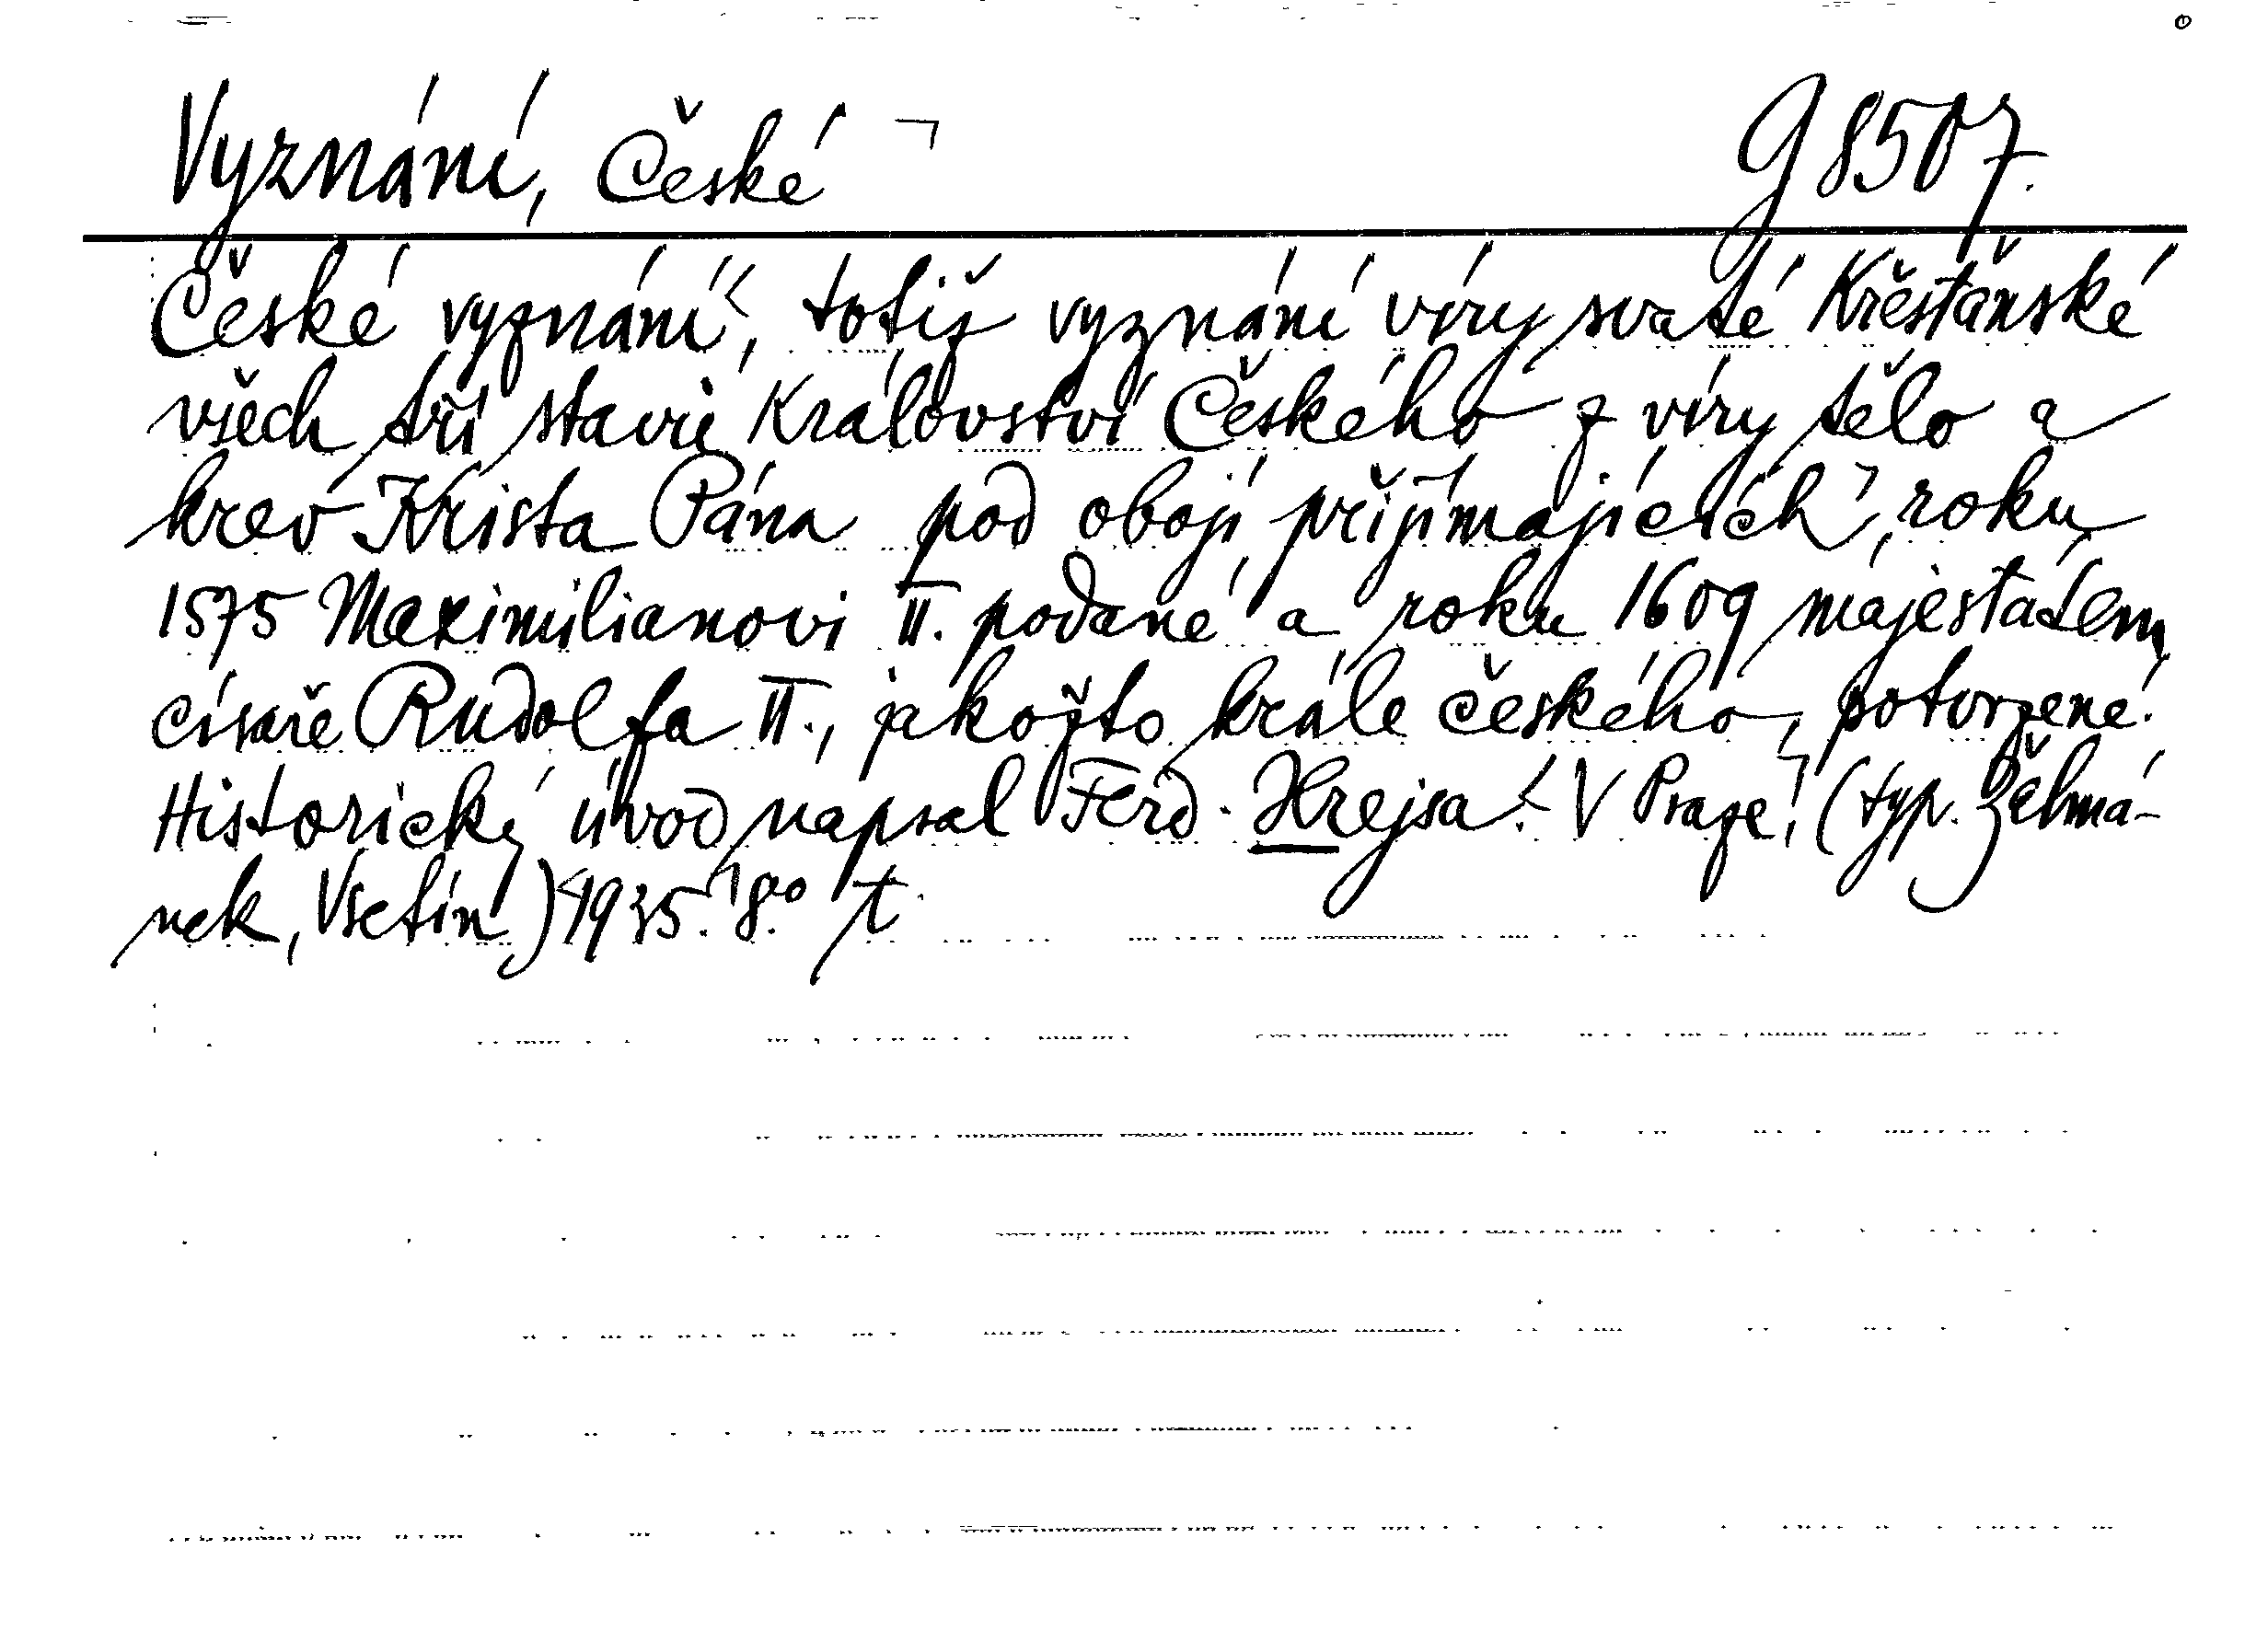 Vyznání, České G 8507.
České vyznání, totiž vyznání víry svaté Křesťanské
všech tří stavů Království Českého z víry tělo a
krev Krista Pána pod obojí přijímajících, roku
1575 Maximilianovi II. podané a roku 1609 majestátem
císaře Rudolfa II., jakožto krále českého, potvrzené.
Historický úvod napsal Ferd. Hrejsa. V Praze, (typ. Žehmá-
nek, Vsetín) 1935. 8°